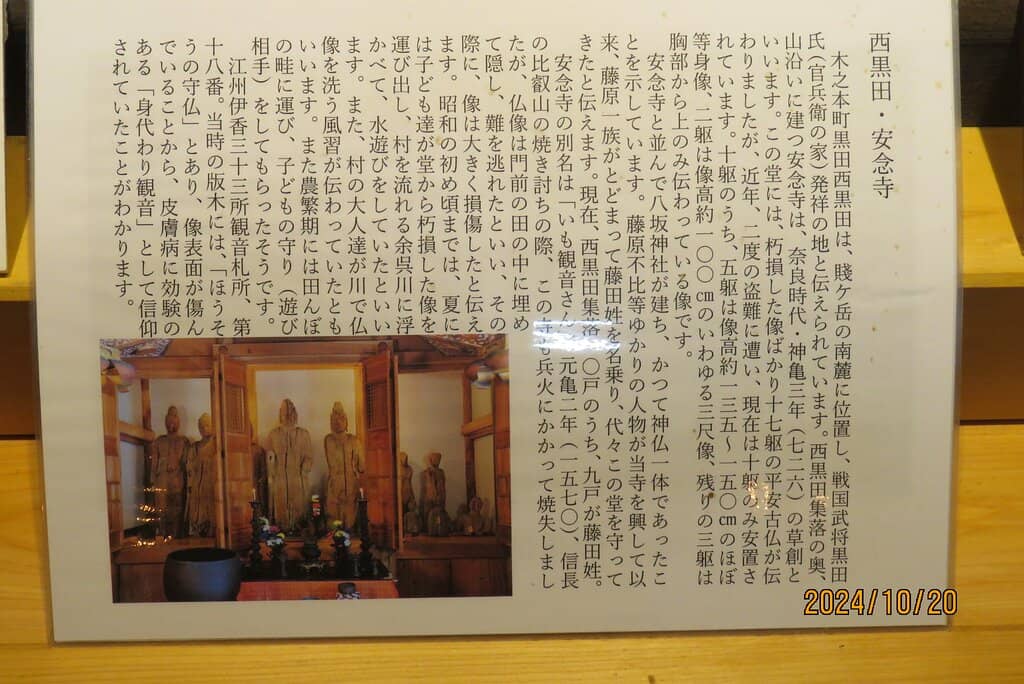 西黒田・安念寺
木之本町黒田西黒田は、賤ケ岳の南麓に位置し、戦国武将黒田
氏(官兵衛の家)発祥の地と伝えられています。西黒田集落の奥、
山沿いに建つ安念寺は、奈良時代・神亀三年(七二六)の草創と
いいます。この堂には、朽損した像ばかり十七躯の平安古仏が伝
わりましたが、近年、二度の盗難に遭い、現在は十躯のみ安置さ
れています。十躯のうち、五躯は像高約一三五~一五〇㎝のほぼ
等身像、二躯は像高約一〇〇㎝のいわゆる三尺像、残りの三躯は
胸部から上のみ伝わっている像です。
安念寺と並んで八坂神社が建ち、かつて神仏一体であったこ
とを示しています。藤原不比等ゆかりの人物が当寺を興して以
来、藤原一族がとどまって藤田姓を名乗り、代々この堂を守って
きたと伝えます。現在、西黒田集落一〇戸のうち、九戸が藤田姓。
安念寺の別名は「いも観音さん」。元亀二年(一五七〇)、信長
の比叡山の焼き討ちの際、この寺も兵火にかかって焼失しまし
たが、仏像は門前の田の中に埋め
て隠し、難を逃れたといい、その
際に、像は大きく損傷したと伝え
ます。昭和の初め頃までは、夏に
は子ども達が堂から朽損した像を
運び出し、村を流れる余呉川に浮
かべて、水遊びをしていたといい
ます。また、村の大人達が川で仏
像を洗う風習が伝わっていたとも
いいます。また農繁期には田んぼ
の畦に運び、子どもの守り(遊び
相手)をしてもらったそうです。
江州伊香三十三所観音札所、第
十八番。当時の版木には、「ほうそ
うの守仏」とあり、像表面が傷ん
でいることから、皮膚病に効験の
ある「身代わり観音」として信仰
されていたことがわかります。
2024/10/20